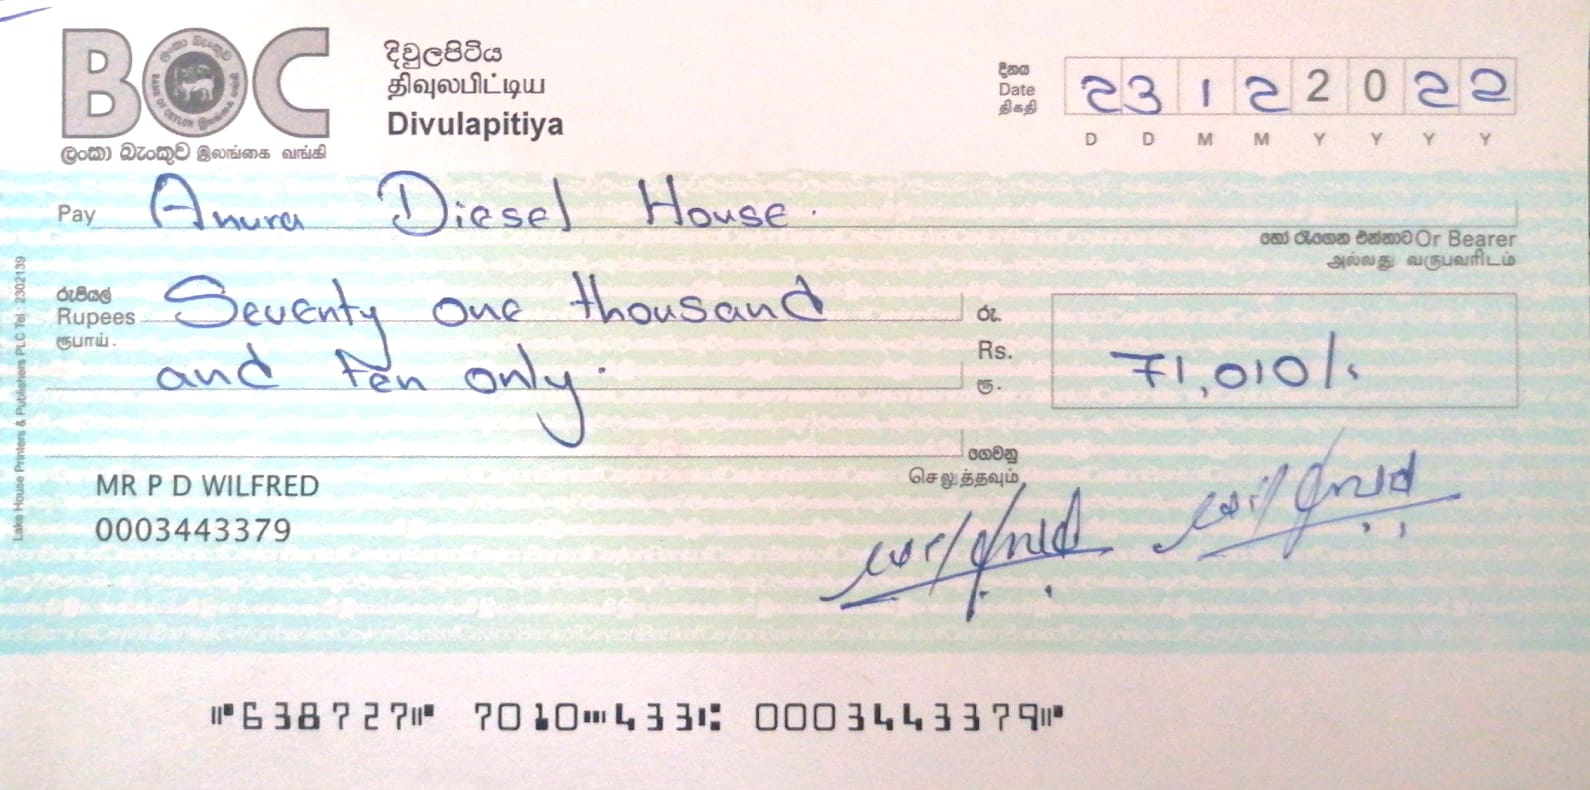 BOC
ලංකා බැංකුව இலங்கை வங்கி
දිවුලපිටිය
திவுலபிட்டிய
Divulapitiya
දිනය
Date
திகதி
23 12 2022
D D M M Y Y Y Y
Pay Anura Diesel House.
හෝ රැගෙන එන්නාට Or Bearer
அல்லது வருபவரிடம்
රුපියල්
Rupees Seventy one thousand
ரூபாய்.
and ten only.
රු.
Rs. 71,010/.
ரூ.
ගෙවනු
செலுத்தவும்
MR P D WILFRED
0003443379
Lake House Printers & Publishers PLC Tel : 2302139
BankofCeylonBankofCeylonBankofCeylonBankofCeylon
⑈638727⑈ 7010⑉433⑆ 0003443379⑈